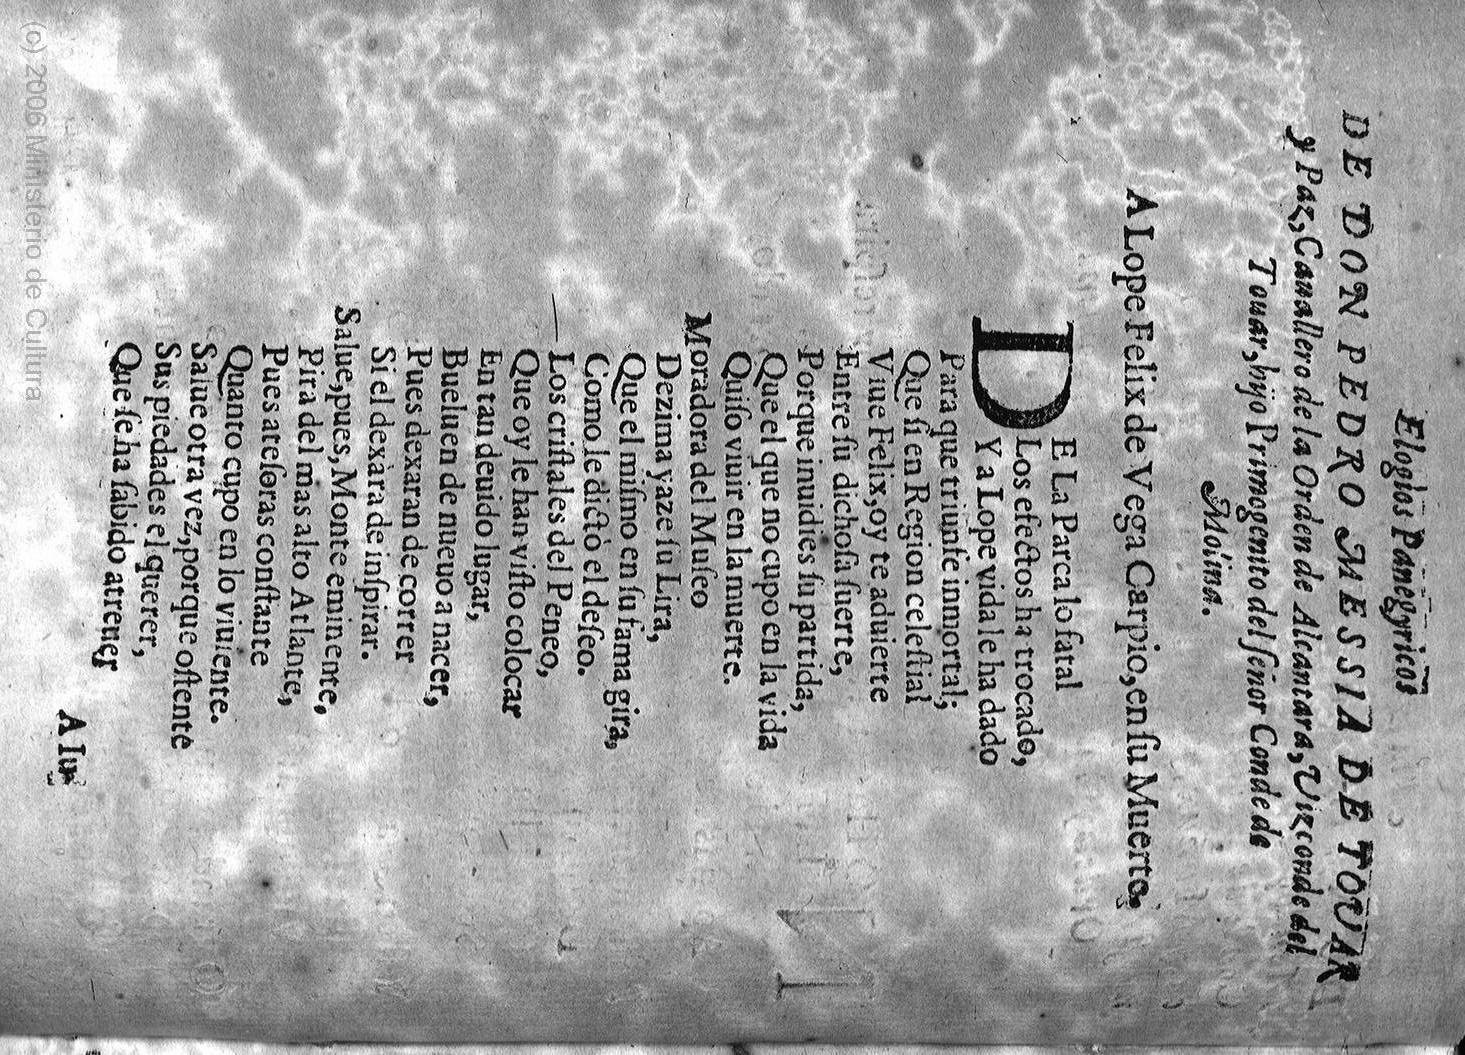 Elogios Panegyricos
DE DON PEDRO MESSIA DE TOUAR
y Paz, Cauallero de la Orden de Alcantara, Vizconde del
Touar, hijo Primogenito del señor Conde de
Molina.
A Lope Felix de Vega Carpio, en ſu Muerte.
DE La Parca lo fatal
Los efectos ha trocado,
Y a Lope vida le ha dado
Para que triunfe inmortal;
Que ſi en Region celeſtial
Viue Felix, oy te aduierte
Entre ſu dichoſa ſuerte,
Porque inuidies ſu partida,
Que el que no cupo en la vida
Quiſo viuir en la muerte.
Moradora del Muſeo
Dezima yaze ſu Lira,
Que el miſmo en ſu fama gira,
Como le dictò el deſeo.
Los criſtales del Peneo,
Que oy le han viſto colocar
En tan deuido lugar,
Bueluen de nueuo a nacer,
Pues dexaran de correr
Si el dexàra de inſpirar.
Salue, pues, Monte eminente,
Pira del mas alto Atlante,
Pues ateſoras conſtante
Quanto cupo en lo viuiente.
Salue otra vez, porque oſtente
Sus piedades el querer,
Que ſe ha ſabido atreuer
A ſu
(c) 2006 Ministerio de Cultura